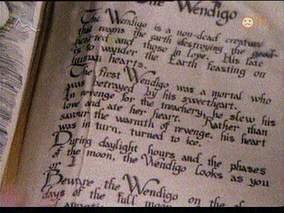 The Wendigo
The Wendigo is a non-dead creature
that roams the earth destroying the good-
hearted and those in love. His fate
is to wander the Earth feasting on
human hearts.
The first Wendigo was a mortal who
was betrayed by his sweetheart.
In revenge for the treachery, he slew his
love and ate her heart. Rather than
savour the warmth of revenge, his heart
was in turn, turned to ice.
During daylight hours and the phases
of the moon, the Wendigo looks as you
or
Beware the Wendigo on the
days of the full moon